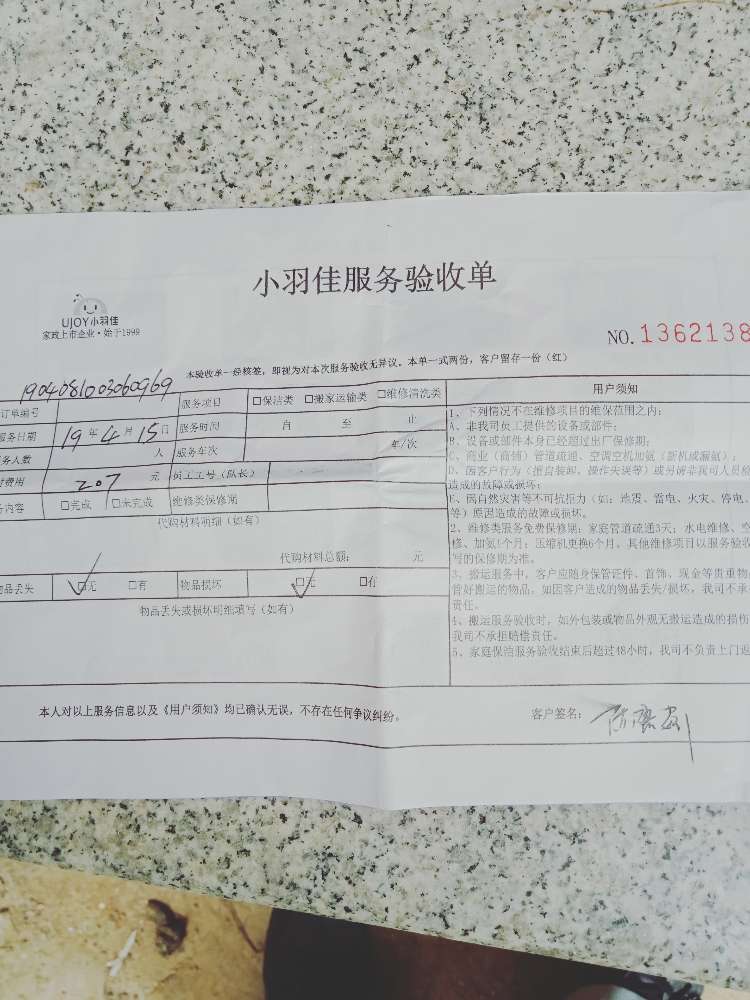 小羽佳服务验收单
UJOY小羽佳
家政上市企业·始于1999
NO. 1362138
本验收单一经核签，即视为对本次服务验收无异议。本单一式两份，客户留存一份（红）
1904081003060969
订单编号 服务项目 □保洁类 □搬家运输类 □维修清洗类
服务日期 19年4月15日 服务时间 自 至 止
务人数 人 服务车次 车/次
费用 207 元 员工工号（队长）
内容 □完成 □未完成 维修类保修期
代购材料明细（如有）
代购材料总额： 元
物品丢失 ☑无 □有 物品损坏 ☑无 □有
物品丢失或损坏明细填写（如有）
用户须知
1、下列情况不在维修项目的维保范围之内：
A、非我司员工提供的设备或部件；
B、设备或部件本身已经超过出厂保修期；
C、商业（商铺）管道疏通、空调空机加氨（新机或漏氨）；
D、因客户行为（擅自装卸、操作失误等）或另请非我司人员维
造成的故障或损坏；
E、因自然灾害等不可抗拒力（如：地震、雷电、火灾、停电、
等）原因造成的故障或损坏。
2、维修类服务免费保修期：家庭管道疏通3天；水电维修、空
修、加氨1个月；压缩机更换6个月。其他维修项目以服务验收
写的保修期为准。
3、搬运服务中，客户应随身保管证件、首饰、现金等贵重物
管好搬运的物品，如因客户造成的物品丢失/损坏，我司不承
责任。
4、搬运服务验收时，如外包装或物品外观无搬运造成的损伤
我司不承担赔偿责任。
5、家庭保洁服务验收结束后超过48小时，我司不负责上门返
本人对以上服务信息以及《用户须知》均已确认无误，不存在任何争议纠纷。
客户签名：